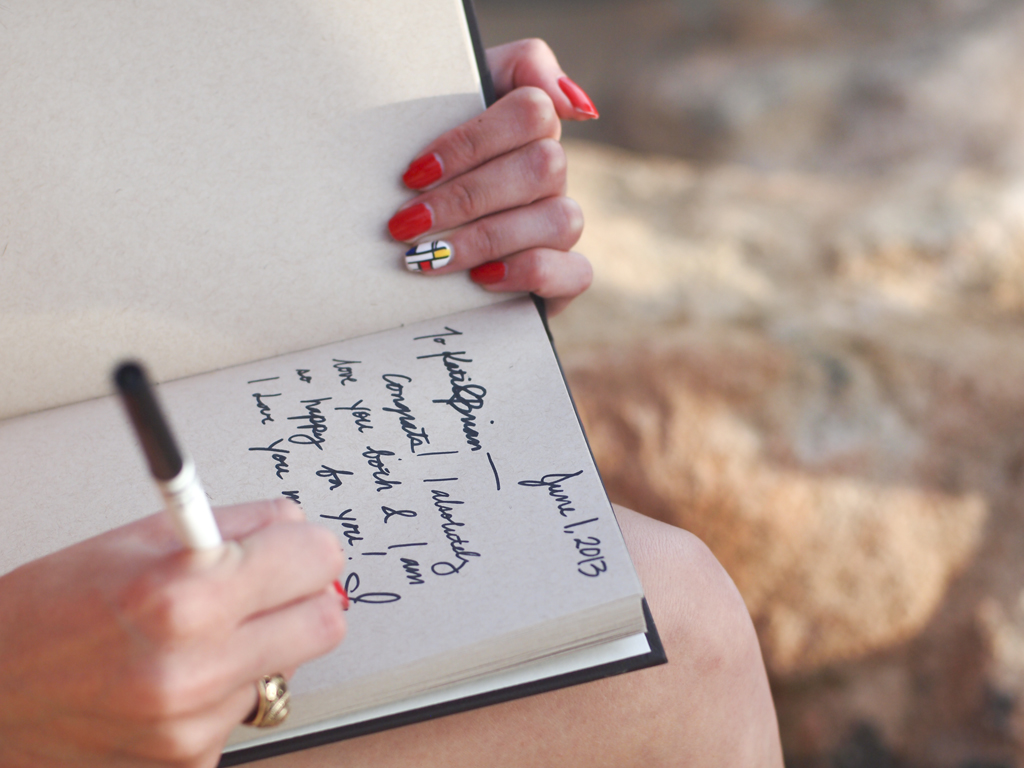 June 1, 2013
To Katie & Brian —
Congrats! I absolutely
love you both & I am
so happy for you! So
I Love you